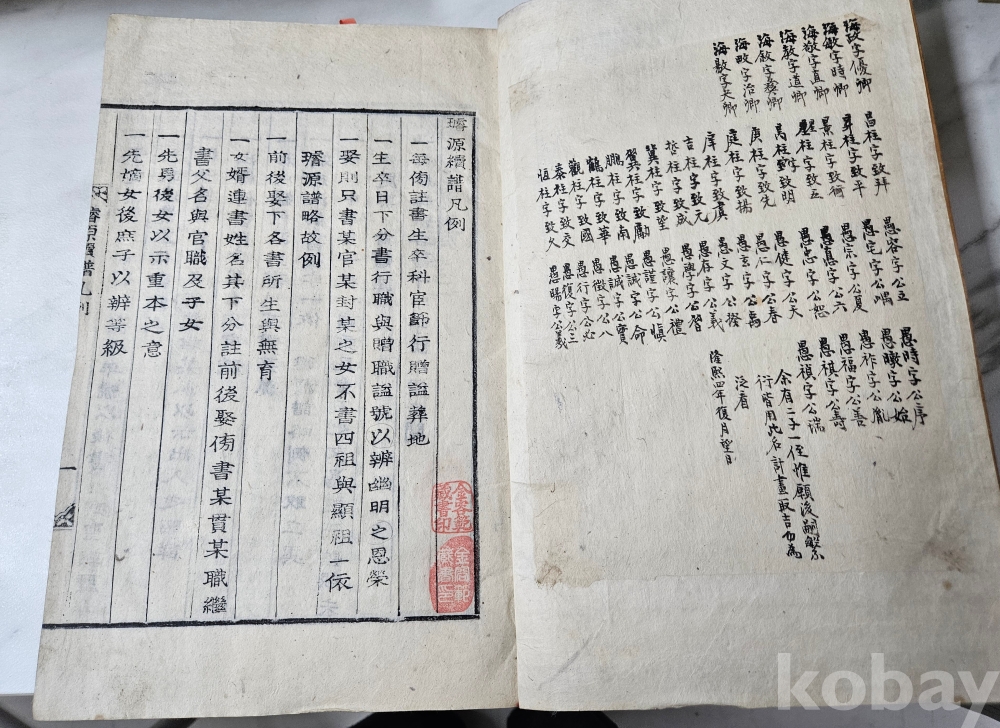 海政字優卿
海敏字時卿
海敬字直卿
海敎字道卿
海敍字彝卿
海畋字治卿
海敭字天卿
昌柱字致拜
昇柱字致平
景柱字致衡
柱字致五
昺柱字致明
庚柱字致先
庭柱字致揚
庠柱字致虞
吉柱字致元
柱字致成
冀柱字致望
翼柱字致勵
鵬柱字致南
鶴柱字致華
觀柱字致國
泰柱字致交
恒柱字致久
愚容字公立
愚宅字公喘
愚宗字公夏
愚寘字公六
愚忠字公恕
愚健字公天
愚仁字公春
愚玄字公禹
愚文字公發
愚存字公義
愚學字公習
愚讓字公禮
愚謹字公愼
愚誠字公命
愚誠字公實
愚徵字公八
愚行字公必
愚復字公三
愚暘字公義
愚時字公序
愚暾字公始
愚祚字公胤
愚福字公善
愚祺字公壽
愚禎字公瑞
余有二子一侄惟願後嗣繁
衍皆用此名計畫取吉也爲
泛看
隆熙四年復月望日
璿源續譜凡例
一每傍註書生卒科宦諡行贈謚葬地
一生卒日下分書行職與贈職謚號以辨幽明之恩榮
一娶則只書某官某封某之女不書四祖與顯祖一依
璿源譜略故例
一前後娶下各書所生與無育
一女婿連書姓名其下分註前後娶傍書某貫某職繼
書父名與官職及子女
一先男後女以示重本之意
一先嫡女後庶子以辨等級
璿源續譜凡例
一
金容範
藏書印
金容範
藏書印
kobay